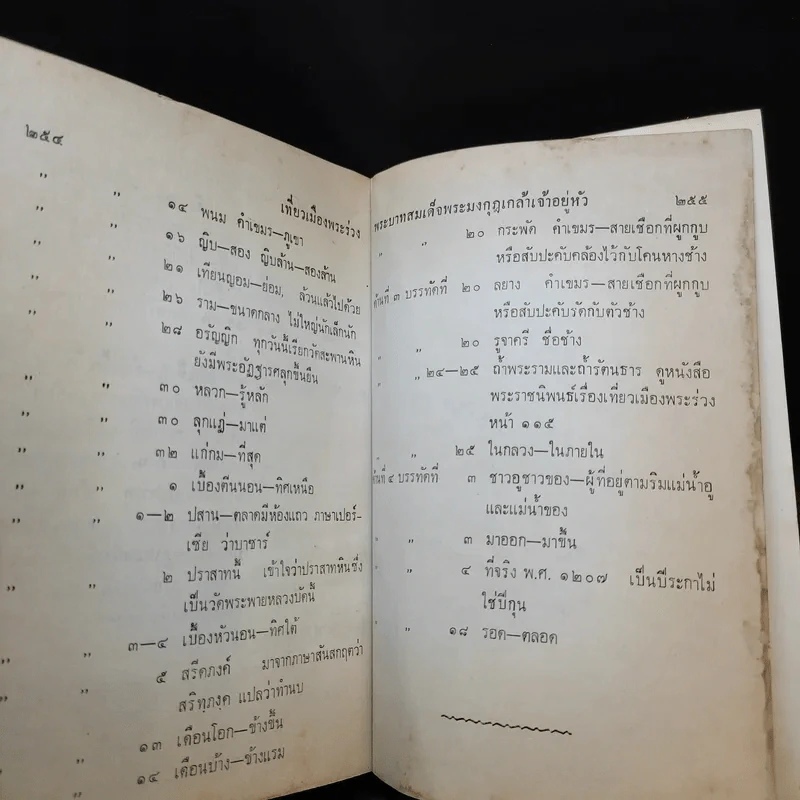 ๒๕๔
เที่ยวเมืองพระร่วง
" " ๑๔ พนม คำเขมร—ภูเขา
" " ๑๖ ญิบ—สอง ญิบล้าน—สองล้าน
" " ๒๑ เทียนญอม—ย่อม, ล้วนแล้วไปด้วย
" " ๒๖ ราม—ขนาดกลาง ไม่ใหญ่นักเล็กนัก
" " ๒๘ อรัญญิก ทุกวันนี้เรียกวัดสะพานหิน
ยังมีพระอัฏฐารศลุกขึ้นยืน
" " ๓๐ หลวก—รู้หลัก
" " ๓๐ ลุกแฏ่—มาแต่
" " ๓๒ แก่กม—ที่สุด
" " ๑ เบื้องตีนนอน—ทิศเหนือ
" " ๑—๒ ปสาน—ตลาดมีห้องแถว ภาษาเปอร์-
เซีย ว่าบาซาร์
" " ๒ ปราสาทนี้ เข้าใจว่าปราสาทหินซึ่ง
เป็นวัดพระพายหลวงบัดนี้
" " ๓—๔ เบื้องหัวนอน—ทิศใต้
" " ๕ สรีดภงค์ มาจากภาษาสันสกฤตว่า
สริทฺภงฺค แปลว่าทำนบ
" " ๑๓ เดือนโอก—ข้างขึ้น
" " ๑๔ เดือนบ้าง—ข้างแรม
พระบาทสมเด็จพระมงกุฎเกล้าเจ้าอยู่หัว ๒๕๕
" " ๒๐ กระพัด คำเขมร—สายเชือกที่ผูกกูบ
หรือสัปะคับคล้องไว้กับโคนหางช้าง
ด้านที่ ๓ บรรทัดที่ ๒๐ ลยาง คำเขมร—สายเชือกที่ผูกกูบ
หรือสับปะคับรัดกับตัวช้าง
" " ๒๐ รูจาครี ชื่อช้าง
" " ๒๔—๒๕ ถ้ำพระรามและถ้ำรัตนธาร ดูหนังสือ
พระราชนิพนธ์เรื่องเที่ยวเมืองพระร่วง
หน้า ๑๑๕
" " ๒๕ ในกลวง—ในภายใน
ด้านที่ ๔ บรรทัดที่ ๓ ชาวอูชาวของ—ผู้ที่อยู่ตามริมแม่น้ำอู
และแม่น้ำของ
" " ๓ มาออก—มาขึ้น
" " ๔ ที่จริง พ.ศ. ๑๒๐๗ เป็นปีระกาไม่
ใช่ปีกุน
" " ๑๘ รอด—ตลอด